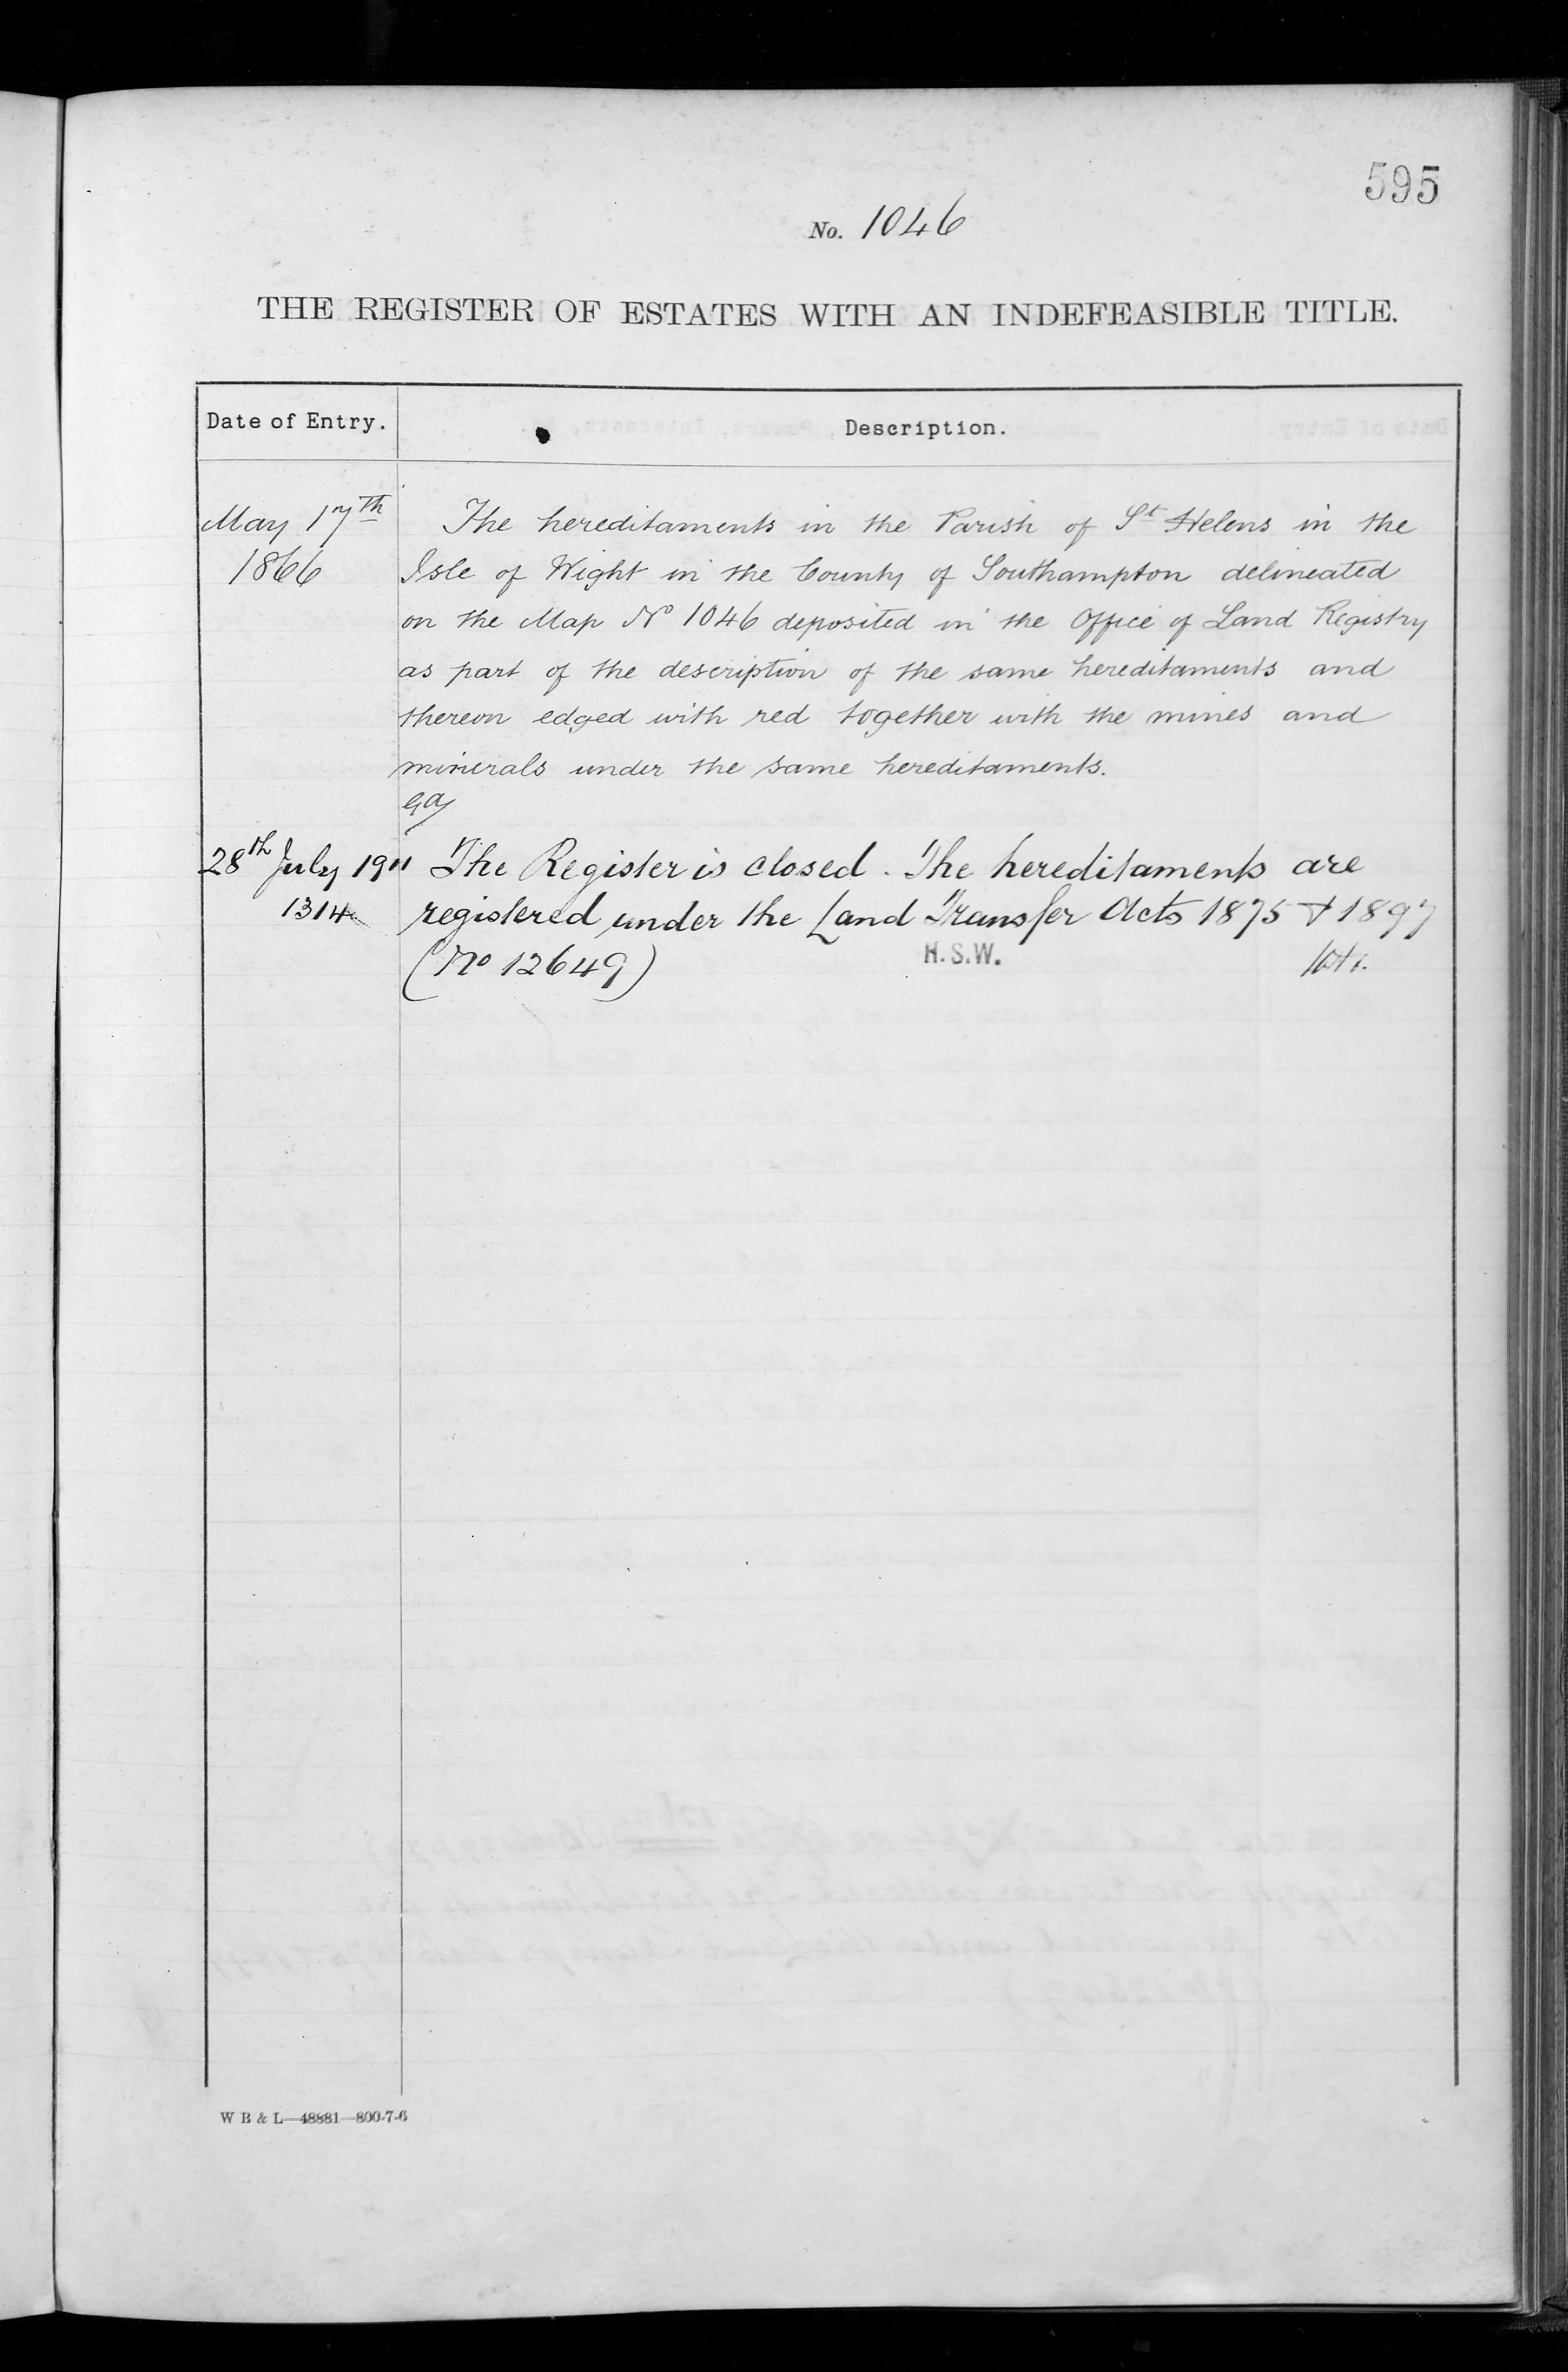 595
No. 1046
THE REGISTER OF ESTATES WITH AN INDEFEASIBLE TITLE.
Date of Entry. Description.
May 17th The hereditaments in the Parish of St Helens in the
1866 Isle of Wight in the County of Southampton delineated
on the Map No 1046 deposited in the Office of Land Registry
as part of the description of the same hereditaments and
thereon edged with red together with the mines and
minerals under the same hereditaments.
28th July 1911 The Register is closed. The hereditaments are
1314 registered under the Land Transfer Acts 1875 & 1897
(No 12649) H.S.W.
W B & L—48881—800-7-6